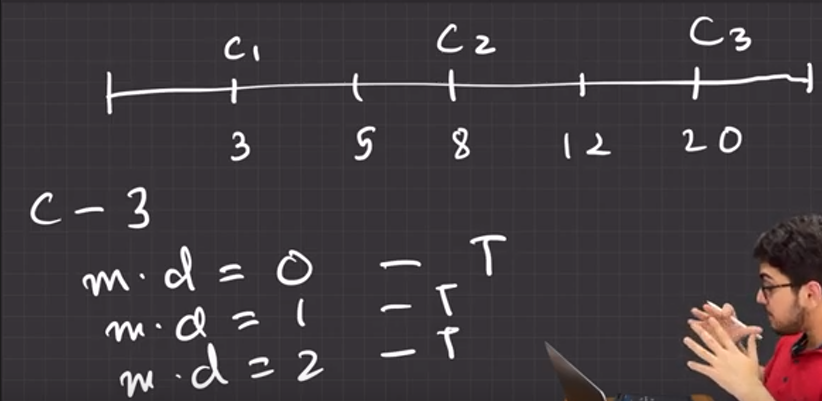 C1 C2 C3
3 5 8 12 20
C - 3
m.d = 0 - T
m.d = 1 - T
m.d = 2 - T